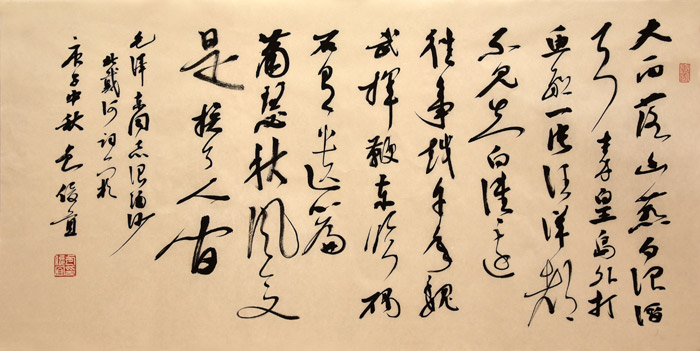 大雨落幽燕白浪滔
天秦皇島外打
魚船一片汪洋都
不见知向谁边
往事越千年魏
武揮鞭东临碣
石有遗篇
萧瑟秋风今又
是换了人间
毛泽东同志浪淘沙
北戴河词一首
庚子中秋